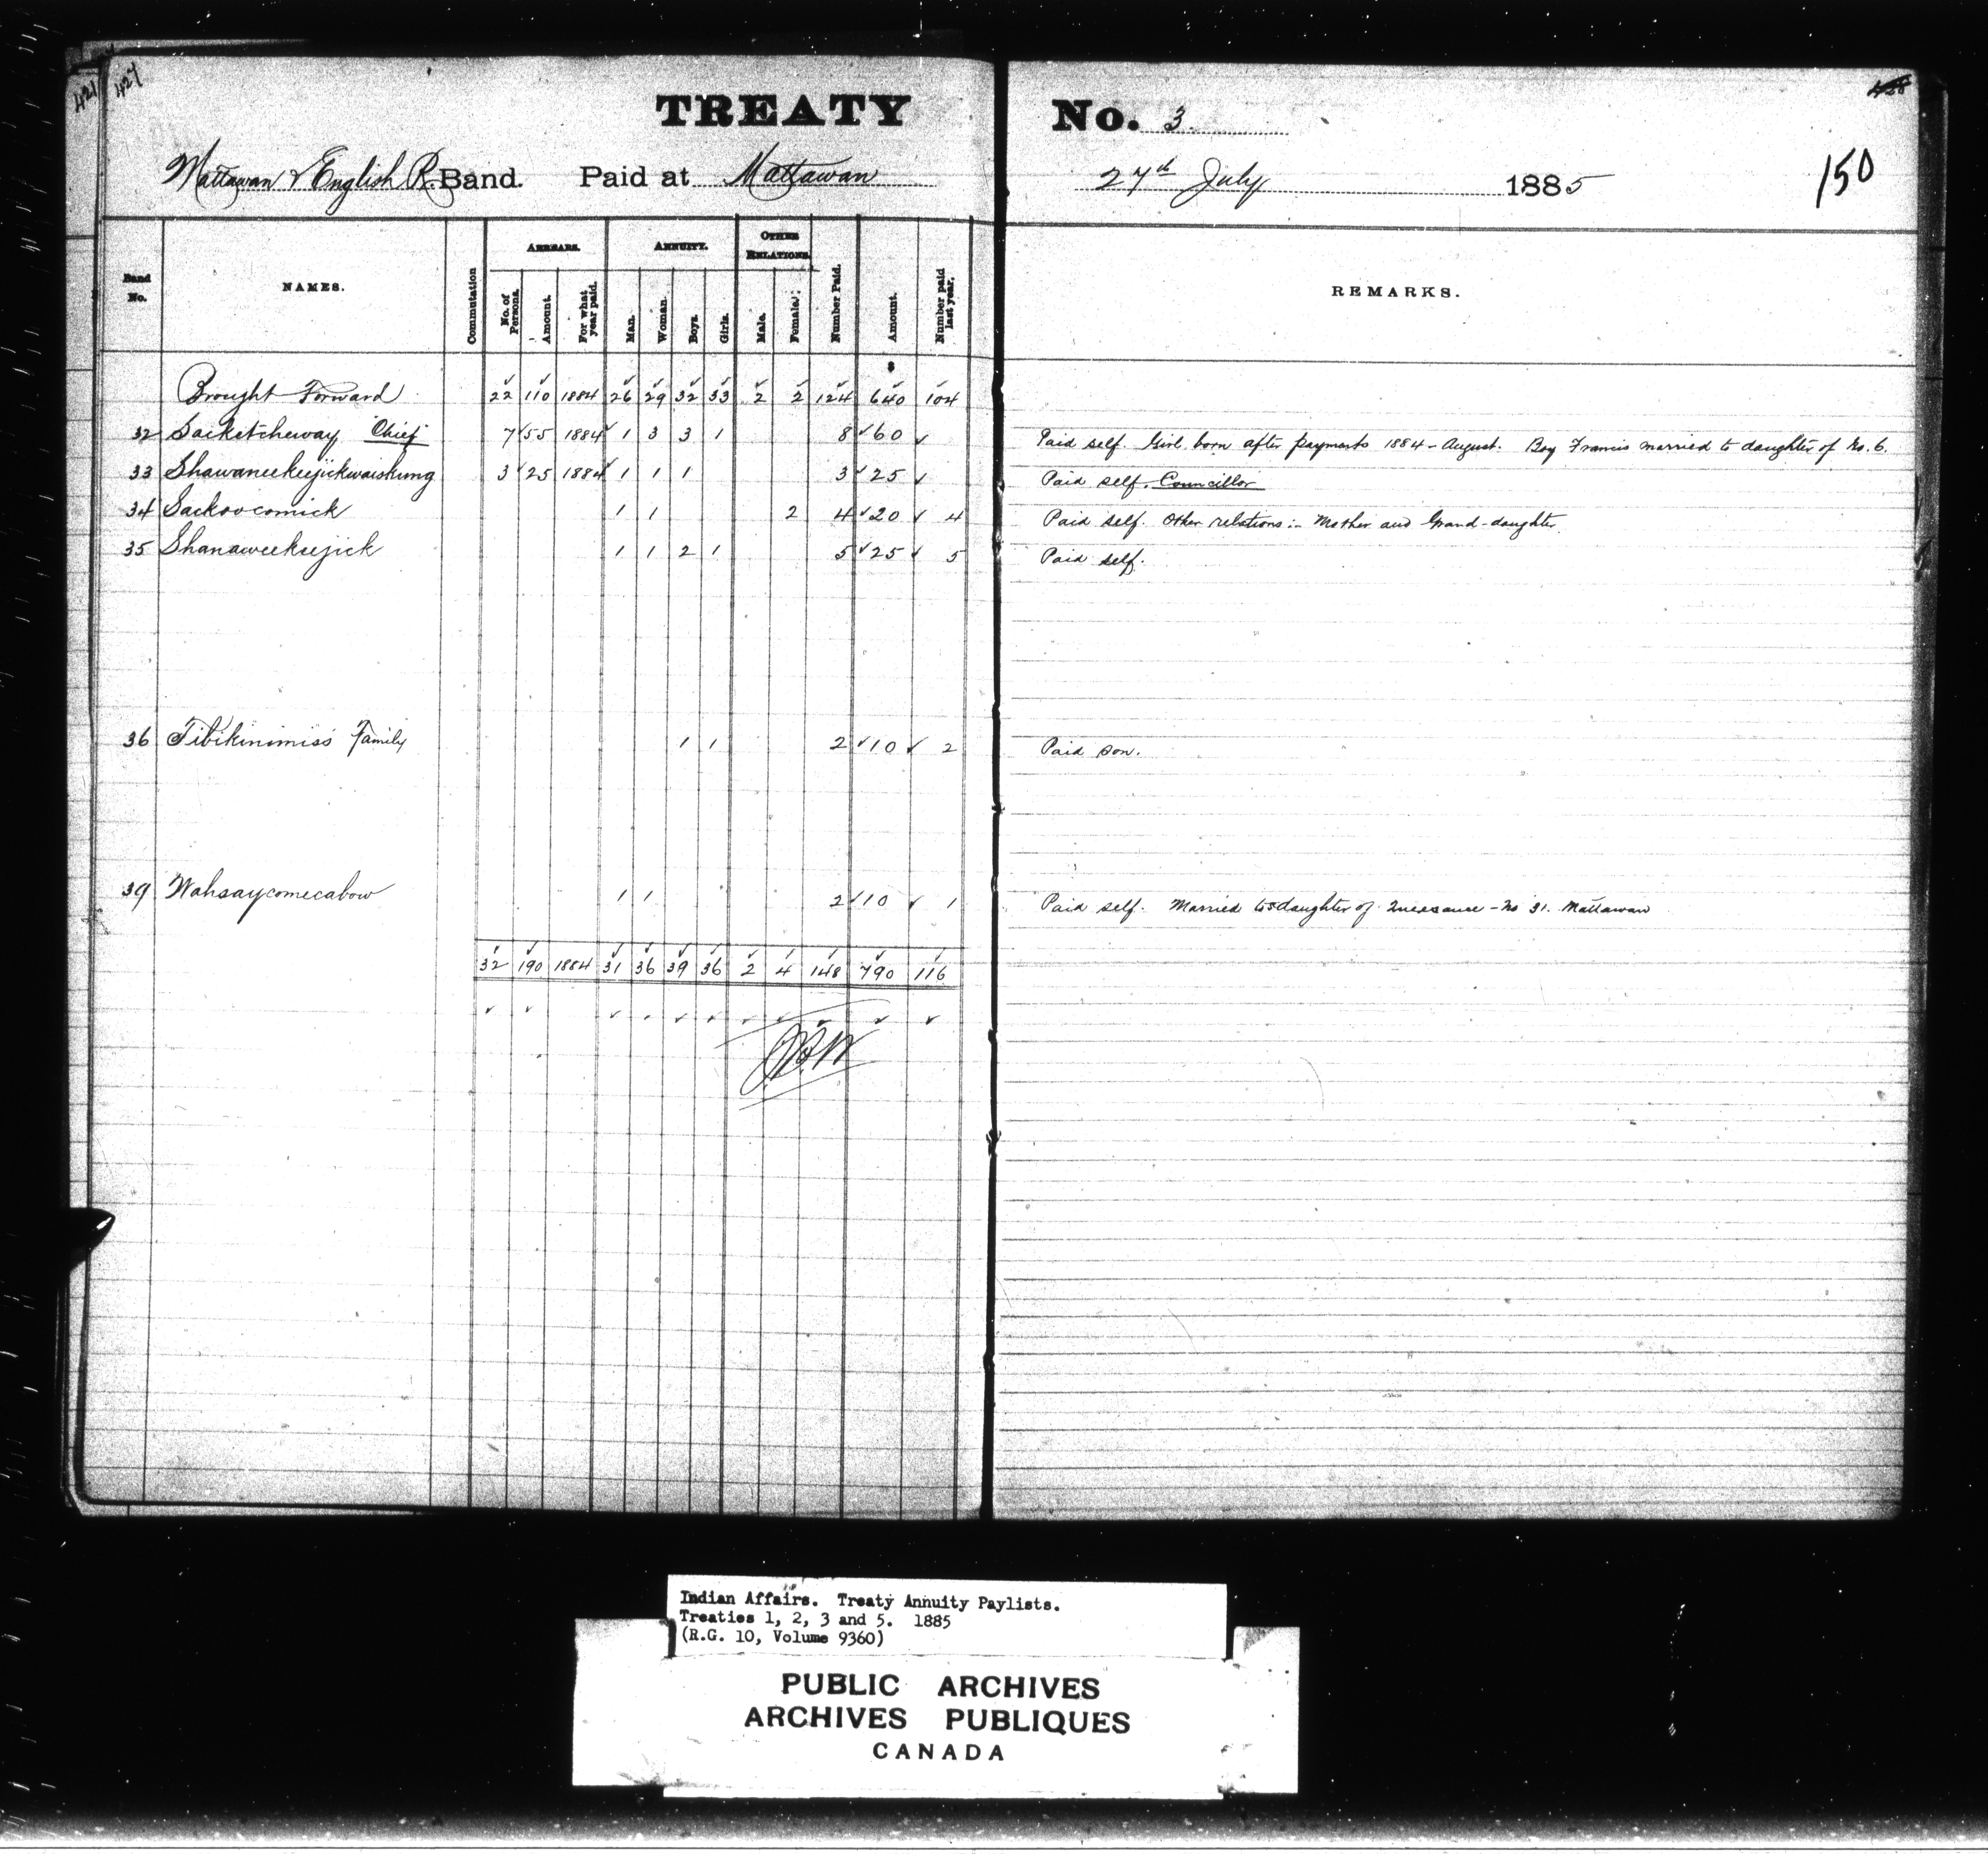 421 427 428
TREATY No. 3.
Mattawan & English R. Band. Paid at Mattawan 27th July 1885 150
Band No. NAMES. Commutation ARREARS. No. of Persons. Amount. For what year paid. ANNUITY. Man. Woman. Boys. Girls. OTHER RELATIONS. Male. Female. Number Paid. Amount. Number paid last year. REMARKS.
Brought Forward 22 110 1884 26 29 32 33 2 2 124 640 104
32 Sacketcheway Chief 7 55 1884 1 3 3 1 8 60 Paid self. Girl born after payments 1884 - August. Boy Francis married to daughter of No. 6.
33 Shawaneekeejickwaiskung 3 25 1884 1 1 1 3 25 Paid self. Councillor
34 Sackoocomick 1 1 2 4 20 4 Paid self. Other relations:- Mother and Grand-daughter.
35 Shanaweekeejick 1 1 2 1 5 25 5 Paid self.
36 Tibikinimiss Family 1 1 2 10 2 Paid son.
39 Wahsaycomecabow 1 1 2 10 1 Paid self. Married to daughter of - No 31. Mattawan
32 190 1884 31 36 39 36 2 4 148 790 116
Indian Affairs. Treaty Annuity Paylists.
Treaties 1, 2, 3 and 5. 1885
(R.G. 10, Volume 9360)
PUBLIC ARCHIVES
ARCHIVES PUBLIQUES
CANADA